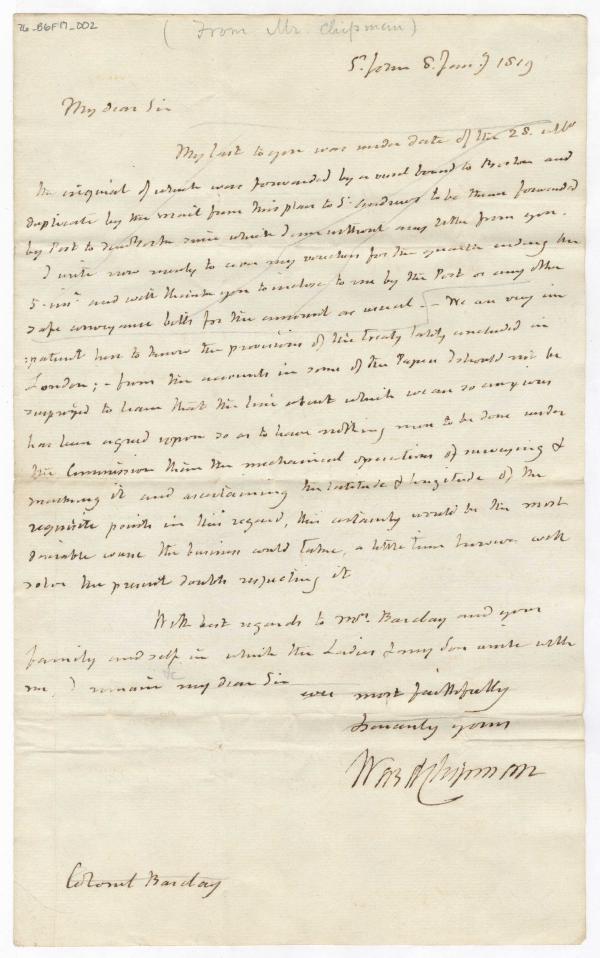 76_B6F17_002
(From Mr. Chipman)
St. John 8. Jany. 1819
My dear Sir
My last to you was under date of the 28. ulto
the original of which was forwarded by a vessel bound to Boston and
duplicate by the mail from this place to St. Andrews to be thence forwarded
by Post to New York since which I am without any letter from you.
I write now merely to cover my vouchers for the quarter ending the
5. inst. and will thank you to inclose to me by the Post or any other
safe conveyance bills for the amount as usual. – We are very im
:patient here to know the provisions of the Treaty lately concluded in
London; – from the accounts in some of the Papers I should not be
surprised to learn that the line about which we are so anxious
has been agreed upon so as to leave nothing more to be done under
the Commission than the mechanical operations of surveying &
marking it and ascertaining the latitude & longitude of the
requisite points in this regard, this certainly would be the most
desirable course the business could take, a little time however will
solve the present doubts respecting it
With best regards to Mrs. Barclay and your
family and self in which the Ladies & my Son unite with
me, I remain my dear Sir
ever most faithfully
& sincerely yours
Ward Chipman
Colonel Barclay